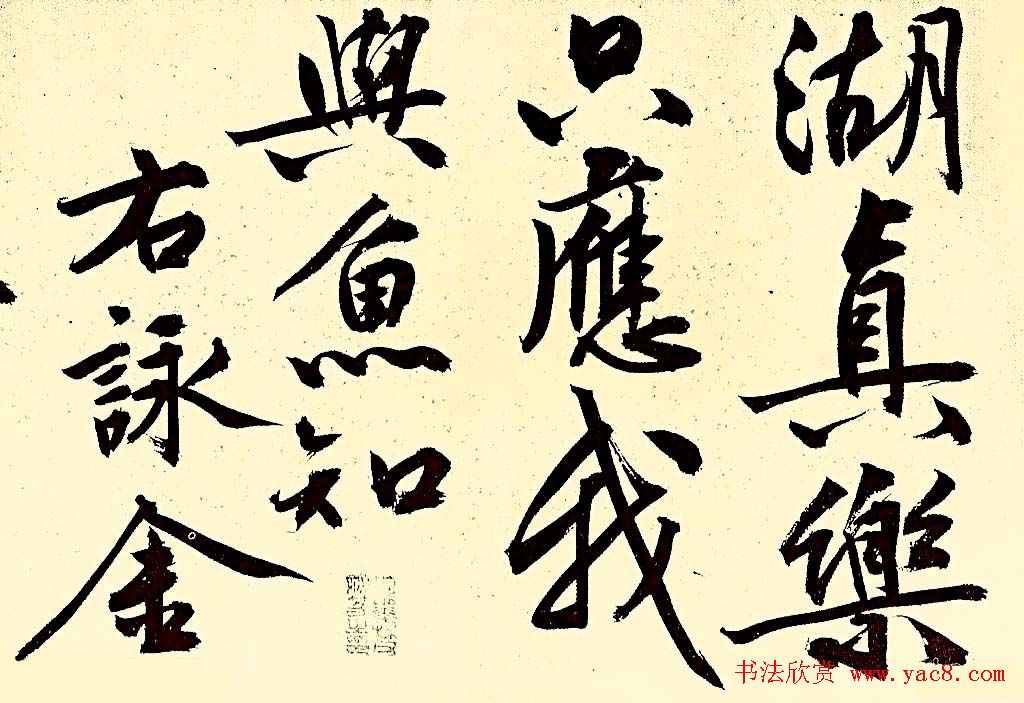 湖真樂
只應我
與魚知
右詠舍
书法欣赏 www.yac8.com